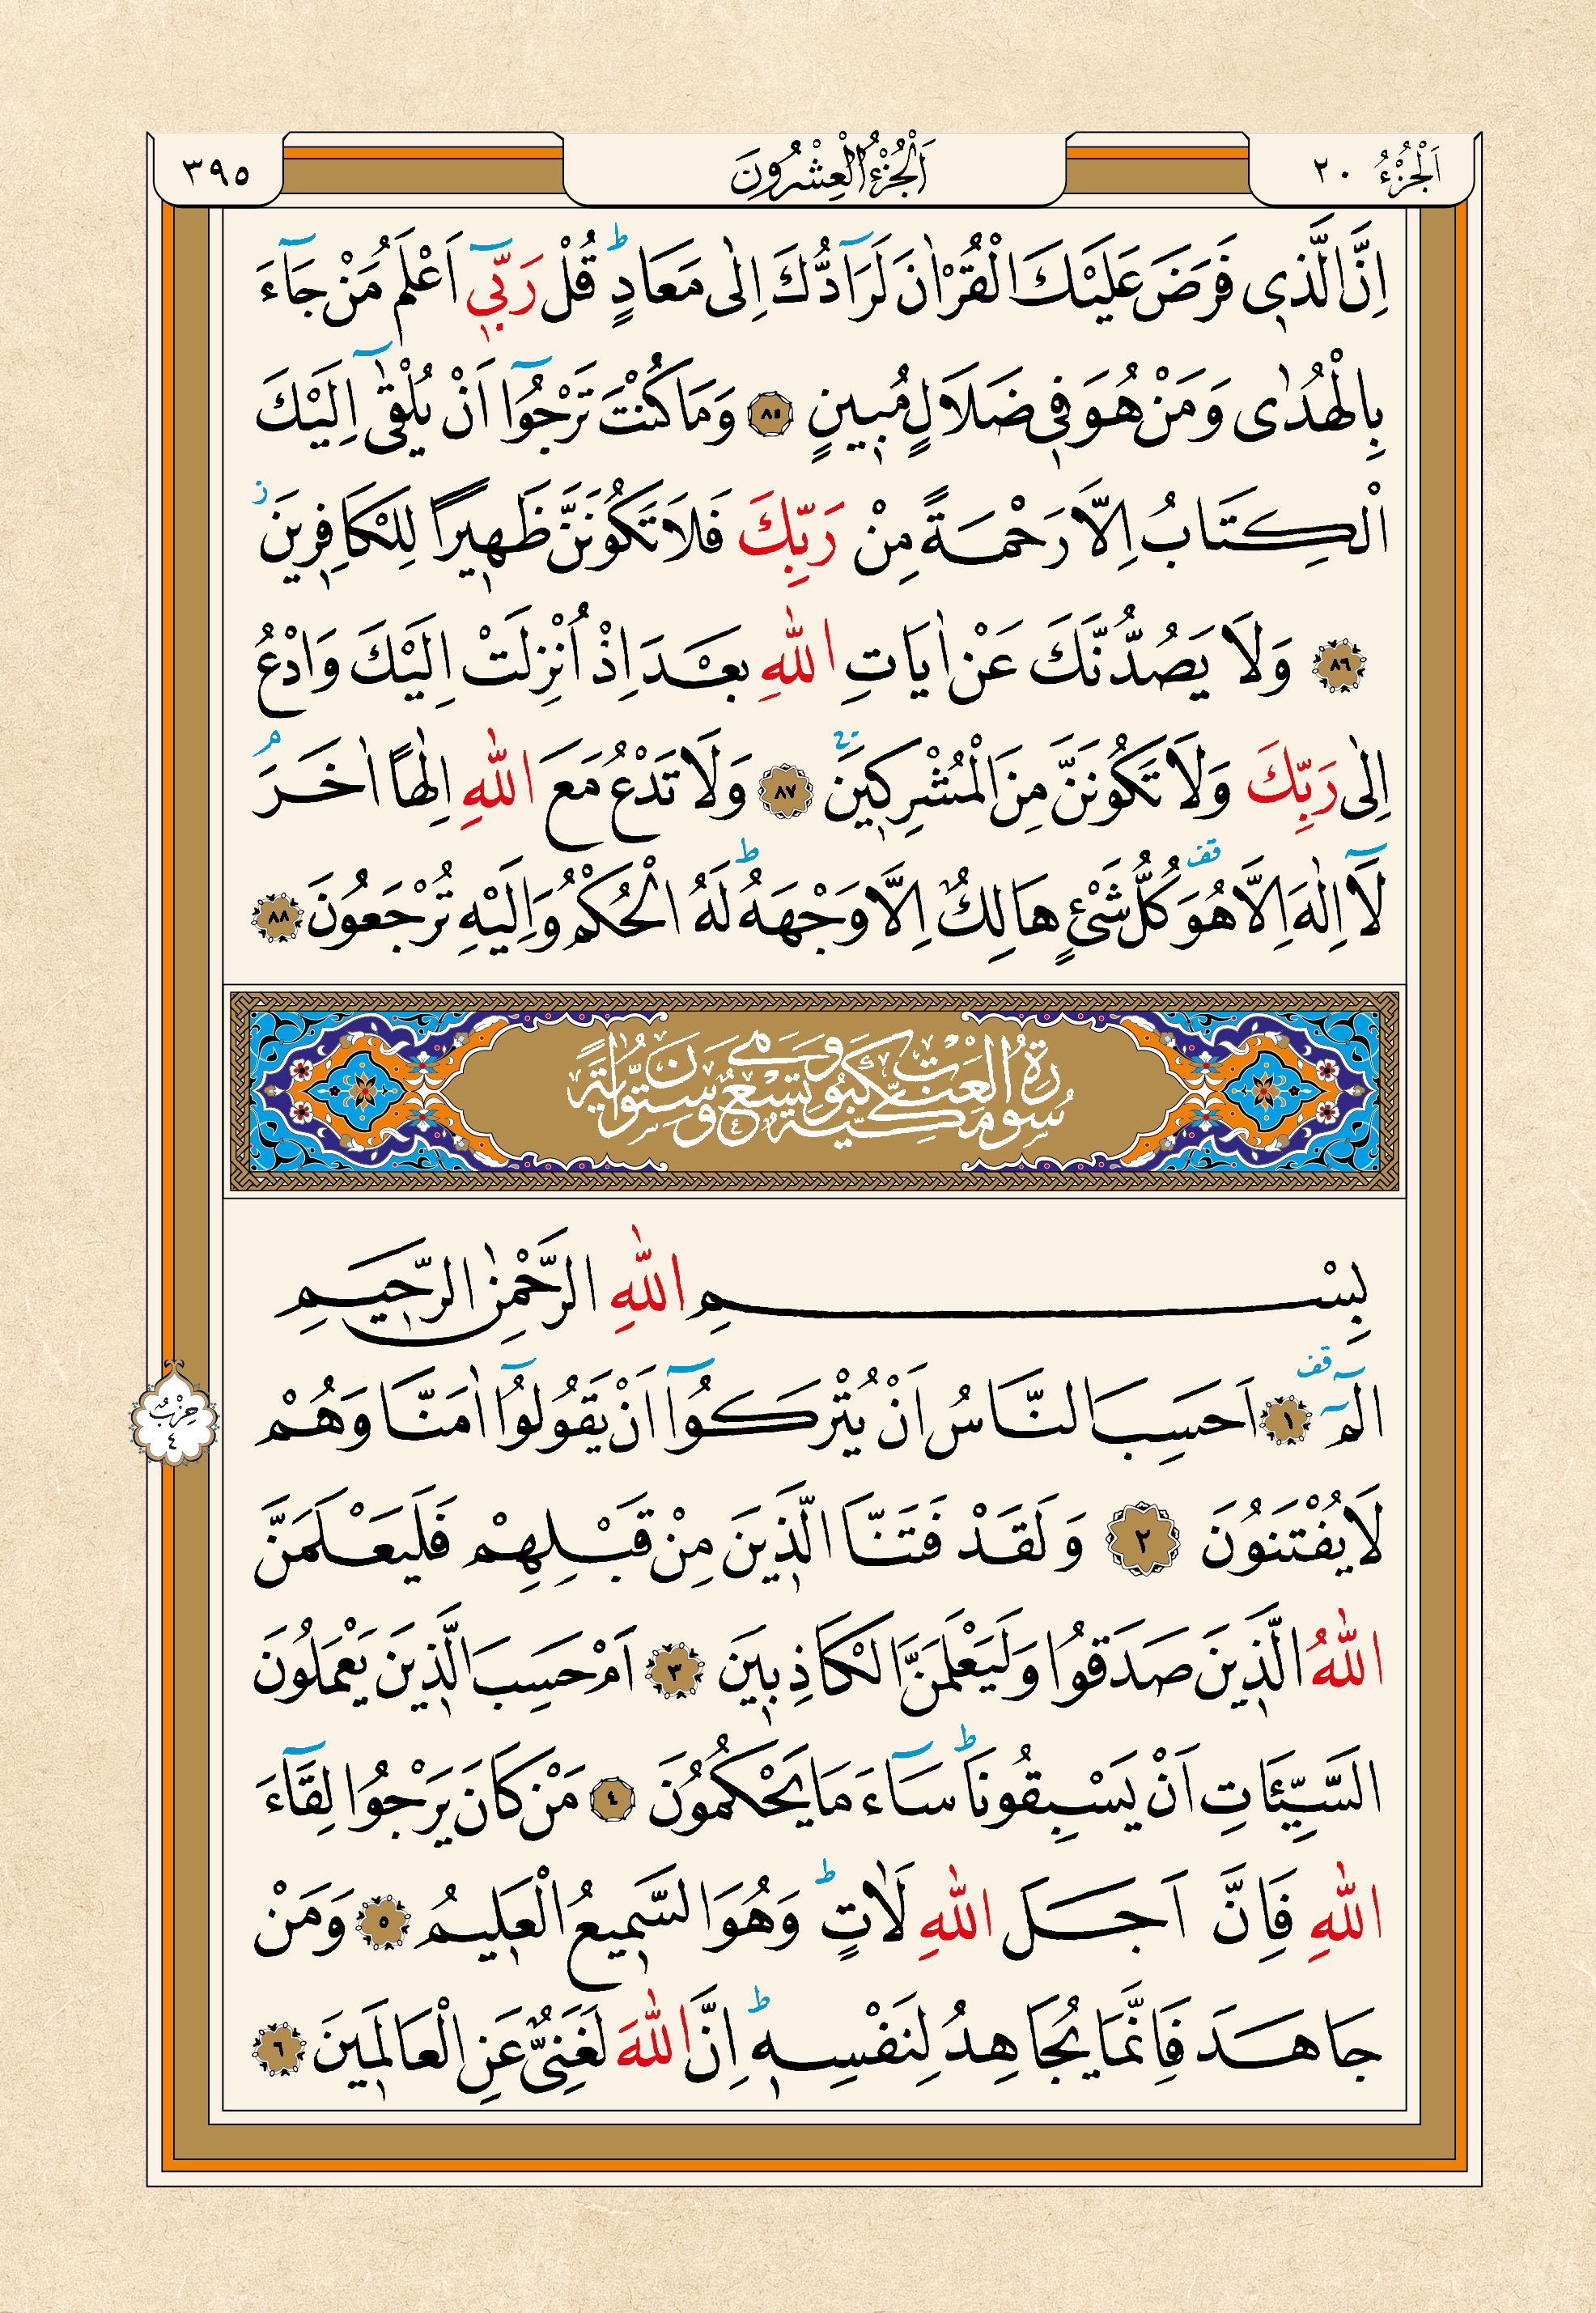 اَلْجُزْءُ ٢٠
اَلْجُزْءُ الْعِشْرُونَ
٣٩٥
اِنَّ الَّذ۪ي فَرَضَ عَلَيْكَ الْقُرْاٰنَ لَرَآدُّكَ اِلٰى مَعَادٍۜ قُلْ رَبّ۪ٓي اَعْلَمُ مَنْ جَٓاءَ
بِالْهُدٰى وَمَنْ هُوَ ف۪ي ضَلَالٍ مُب۪ينٍ ﴿٨٥﴾ وَمَا كُنْتَ تَرْجُٓوا اَنْ يُلْقٰٓى اِلَيْكَ
الْكِتَابُ اِلَّا رَحْمَةً مِنْ رَبِّكَ فَلَا تَكُونَنَّ ظَه۪يراً لِلْكَافِر۪ينَۘ
﴿٨٦﴾ وَلَا يَصُدُّنَّكَ عَنْ اٰيَاتِ اللّٰهِ بَعْدَ اِذْ اُنْزِلَتْ اِلَيْكَ وَادْعُ
اِلٰى رَبِّكَ وَلَا تَكُونَنَّ مِنَ الْمُشْرِك۪ينَۚ ﴿٨٧﴾ وَلَا تَدْعُ مَعَ اللّٰهِ اِلٰهاً اٰخَرَۢ
لَٓا اِلٰهَ اِلَّا هُوَ قف كُلُّ شَيْءٍ هَالِكٌ اِلَّا وَجْهَهُۜ لَهُ الْحُكْمُ وَاِلَيْهِ تُرْجَعُونَ ﴿٨٨﴾
سُورَةُ الْعَنْكَبُوتِ مَكِّيَّةٌ وَهِيَ تِسْعٌ وَسِتُّونَ اٰيَةً
بِسْمِ اللّٰهِ الرَّحْمٰنِ الرَّح۪يمِ
الٓمٓ قف ﴿١﴾ اَحَسِبَ النَّاسُ اَنْ يُتْرَكُٓوا اَنْ يَقُولُٓوا اٰمَنَّا وَهُمْ
حِزْبٌ ٤
لَا يُفْتَنُونَ ﴿٢﴾ وَلَقَدْ فَتَنَّا الَّذ۪ينَ مِنْ قَبْلِهِمْ فَلَيَعْلَمَنَّ
اللّٰهُ الَّذ۪ينَ صَدَقُوا وَلَيَعْلَمَنَّ الْكَاذِب۪ينَ ﴿٣﴾ اَمْ حَسِبَ الَّذ۪ينَ يَعْمَلُونَ
السَّيِّـَٔاتِ اَنْ يَسْبِقُونَاۜ سَٓاءَ مَا يَحْكُمُونَ ﴿٤﴾ مَنْ كَانَ يَرْجُوا لِقَٓاءَ
اللّٰهِ فَاِنَّ اَجَلَ اللّٰهِ لَاٰتٍۜ وَهُوَ السَّم۪يعُ الْعَل۪يمُ ﴿٥﴾ وَمَنْ
جَاهَدَ فَاِنَّمَا يُجَاهِدُ لِنَفْسِه۪ۜ اِنَّ اللّٰهَ لَغَنِيٌّ عَنِ الْعَالَم۪ينَ ﴿٦﴾